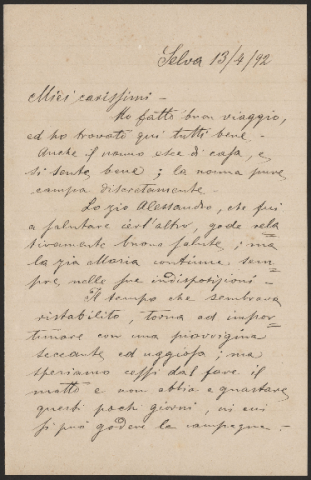 Selva 13/4/92
Miei carissimi –
Ho fatto buon viaggio,
ed ho trovato qui tutti bene –
Anche il nonno esce di casa, e
si sente bene; la nonna pure
campa discretamente –
Lo zio Alessandro, che fui
a salutare ierl'altro, gode rela=
tivamente buona salute; ma
la zia Maria continua sem=
pre nelle sue indisposizioni –
Il tempo che sembrava
ristabilito, torna ad impor=
tunare con una pioverigina
seccante ed uggiosa; ma
speriamo cessi dal fare il
matto e non abbia a guastare
questi pochi giorni, in cui
si può godere la campagna –